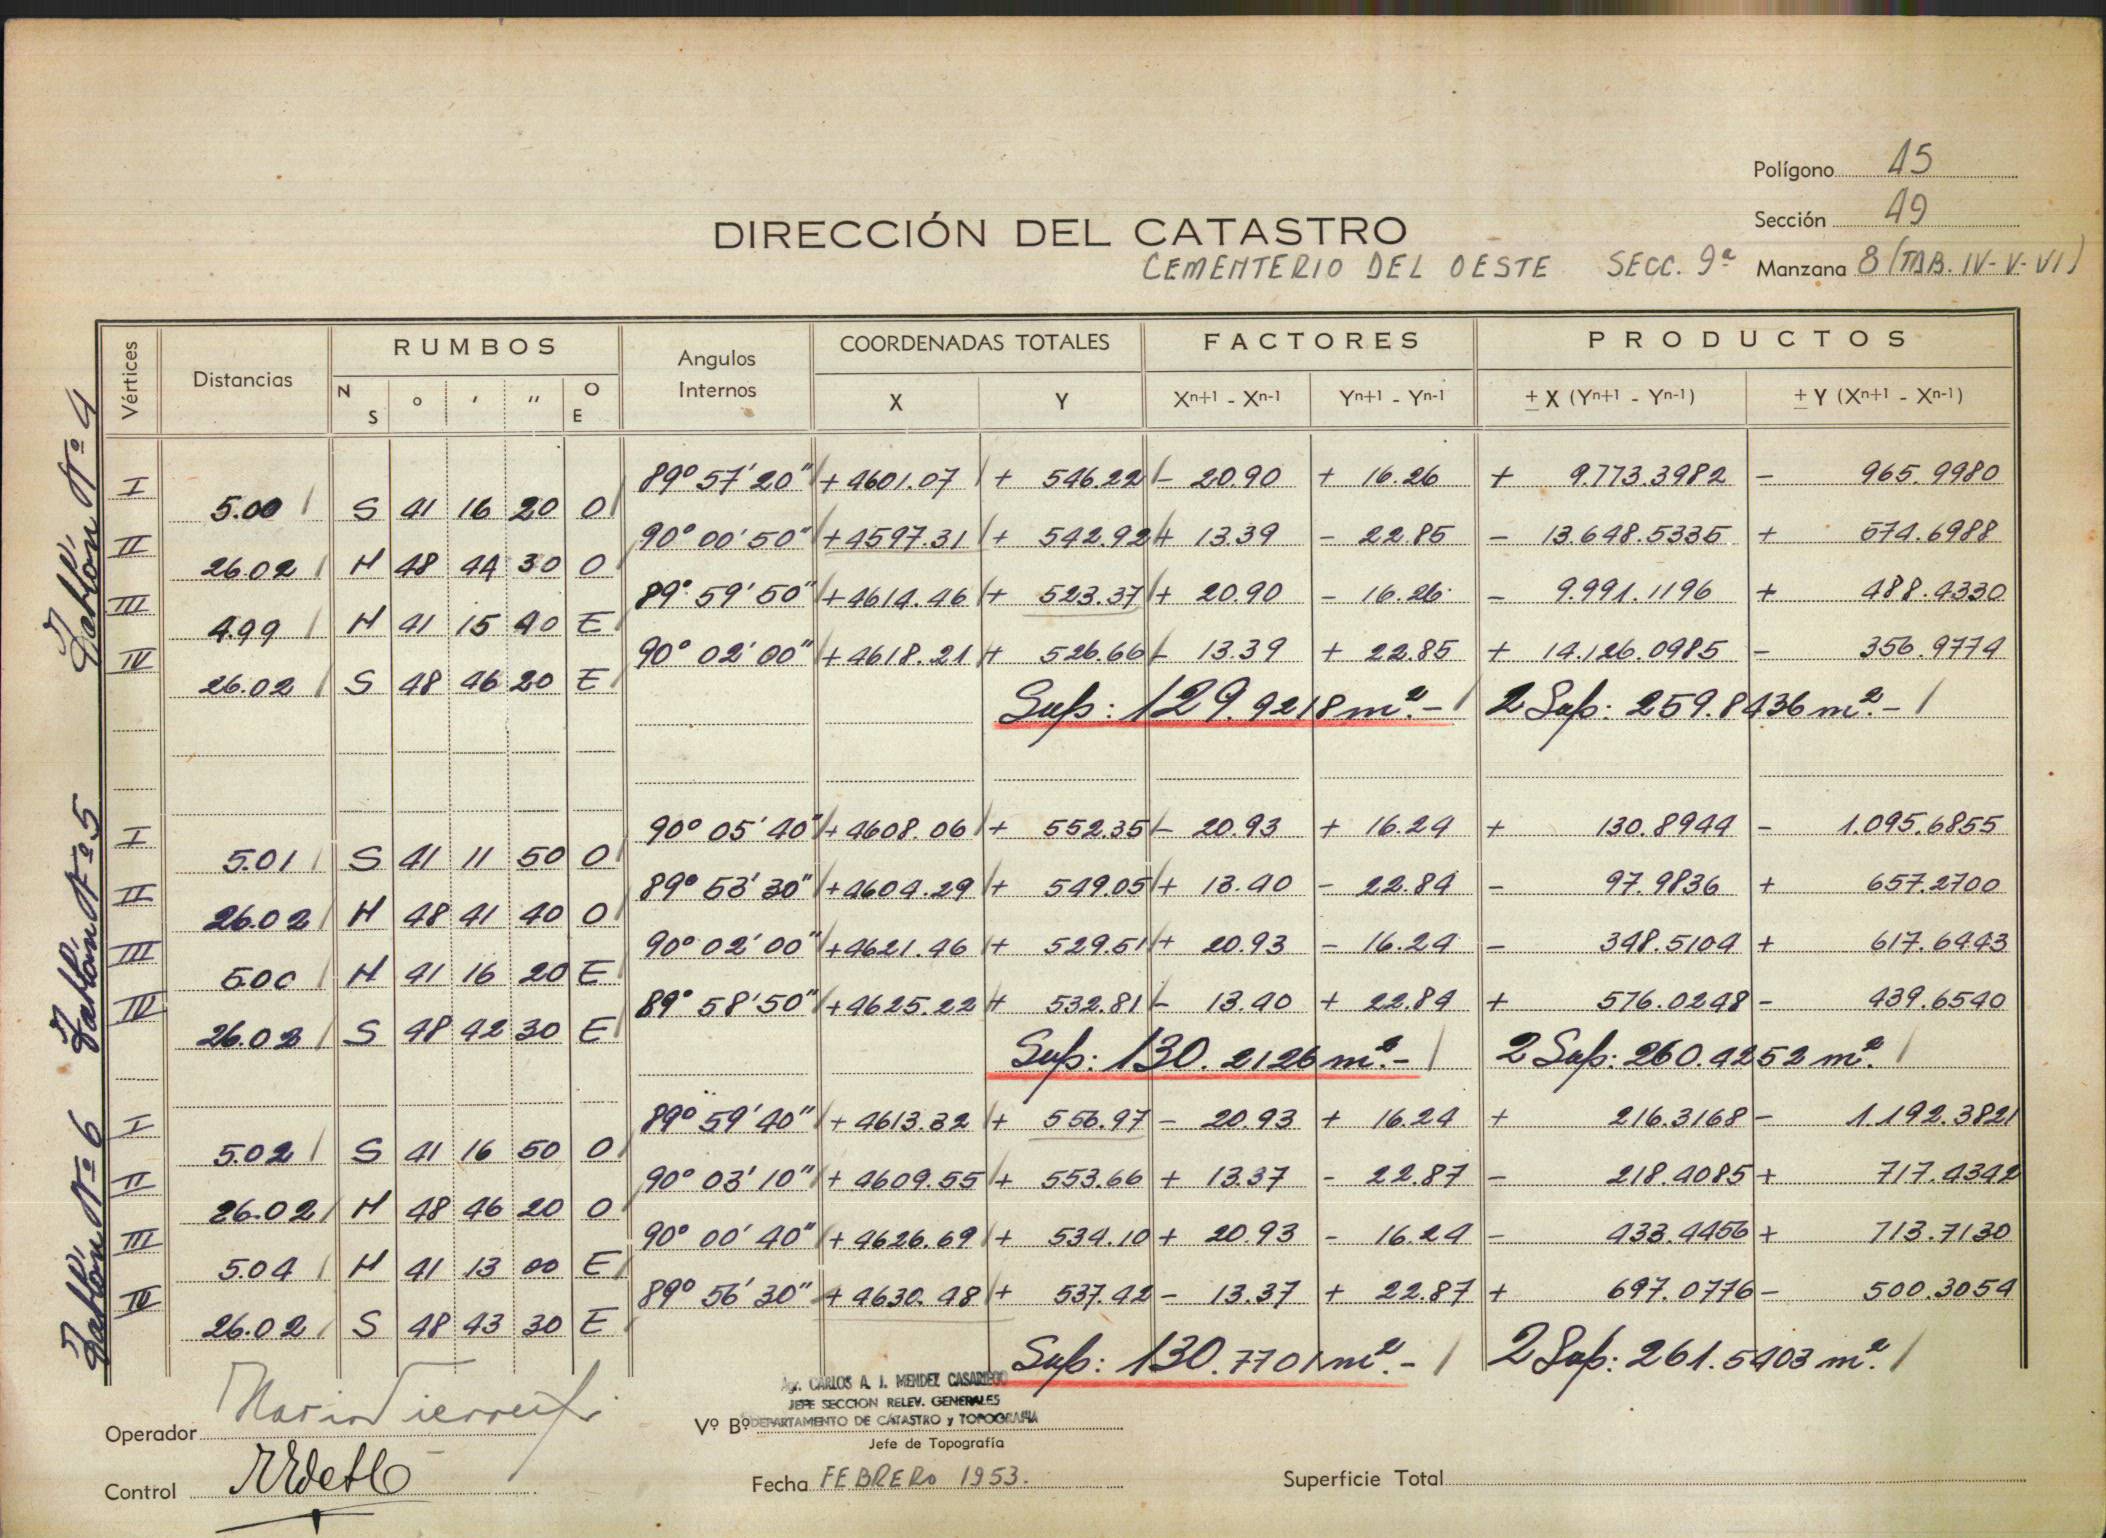 Polígono 45
Sección 49
DIRECCIÓN DEL CATASTRO
CEMENTERIO DEL OESTE SECC. 9ª Manzana 8 (TAB. IV-V-VI)
Vértices Distancias RUMBOS Angulos Internos COORDENADAS TOTALES FACTORES PRODUCTOS
N S ° ' " O E X Y Xn+1 - Xn-1 Yn+1 - Yn-1 ± X (Yn+1 - Yn-1) ± Y (Xn+1 - Xn-1)
Tablón Nº 4
I 89° 57' 20" + 4601.07 + 546.22 - 20.90 + 16.26 + 9.773.3982 - 965.9980
5.00 S 41 16 20 O
II 90° 00' 50" + 4597.31 + 542.92 + 13.39 - 22.85 - 13.648.5335 + 574.6988
26.02 N 48 44 30 O
III 89° 59' 50" + 4614.46 + 523.37 + 20.90 - 16.26 - 9.991.1196 + 488.4330
4.99 N 41 15 40 E
IV 90° 02' 00" + 4618.21 + 526.66 - 13.39 + 22.85 + 14.126.0985 - 356.9774
26.02 S 48 46 20 E
Sup: 129.9218 m².- 2 Sup: 259.8436 m².-
Tablón Nº 5
I 90° 05' 40" + 4608.06 + 552.35 - 20.93 + 16.24 + 130.8944 - 1.095.6855
5.01 S 41 11 50 O
II 89° 53' 30" + 4604.29 + 549.05 + 13.40 - 22.84 - 97.9836 + 657.2700
26.02 N 48 41 40 O
III 90° 02' 00" + 4621.46 + 529.51 + 20.93 - 16.24 - 348.5104 + 617.6443
5.00 N 41 16 20 E
IV 89° 58' 50" + 4625.22 + 532.81 - 13.40 + 22.84 + 576.0248 - 439.6540
26.02 S 48 42 30 E
Sup: 130.2126 m².- 2 Sup: 260.4252 m².
Tablón Nº 6
I 89° 59' 40" + 4613.32 + 556.97 - 20.93 + 16.24 + 216.3168 - 1.192.3821
5.02 S 41 16 50 O
II 90° 03' 10" + 4609.55 + 553.66 + 13.37 - 22.87 - 218.4085 + 717.4342
26.02 N 48 46 20 O
III 90° 00' 40" + 4626.69 + 534.10 + 20.93 - 16.24 - 433.4456 + 713.7130
5.04 N 41 13 00 E
IV 89° 56' 30" + 4630.48 + 537.42 - 13.37 + 22.87 + 697.0776 - 500.3054
26.02 S 48 43 30 E
Sup: 130.7701 m².- 2 Sup: 261.5403 m².
Agr. CARLOS A. I. MENDEZ CASARIEGO
JEFE SECCION RELEV. GENERALES
Operador Vº Bº DEPARTAMENTO DE CATASTRO y TOPOGRAFIA
Jefe de Topografía
Control Fecha FEBRERO 1953. Superficie Total